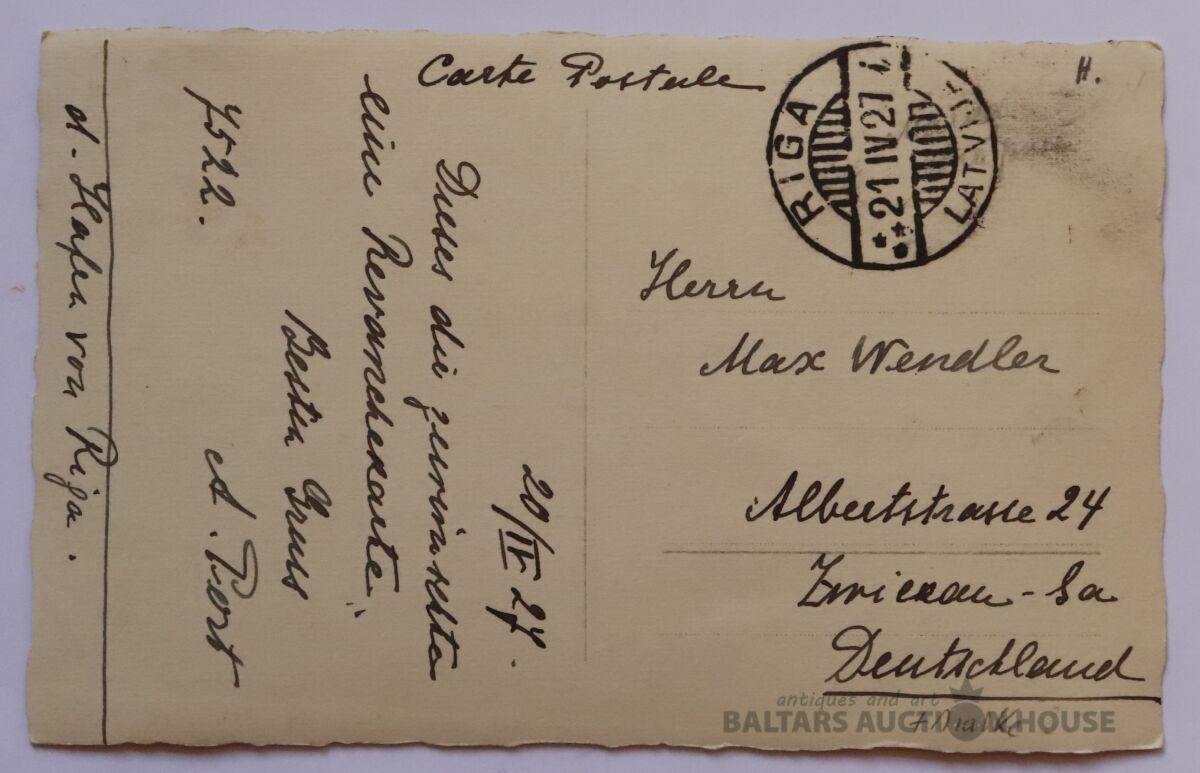 Carte Postale
H.
RIGA
21 IV 27
LATVIJA
20/IV 27.
Dieses die gewünschte
eine Revanchekarte.
Besten Gruss
7522. A. Port
d. Hafen von Riga.
Herrn
Max Wendler
Albertstrasse 24
Zwickau - Sa
Deutschland
antiques and art
BALTARS AUCTION HOUSE